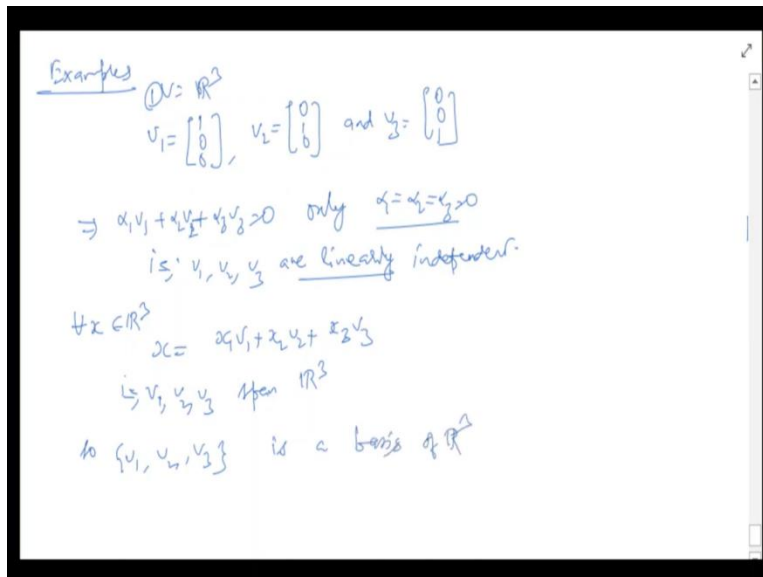 Examples
① V = ℝ³
v₁ = [1 0 0], v₂ = [0 1 0] and v₃ = [0 0 1]
⇒ α₁v₁ + α₂v₂ + α₃v₃ = 0 only α₁ = α₂ = α₃ = 0
ie, v₁, v₂, v₃ are linearly independent.
∀x ∈ ℝ³
x = x₁v₁ + x₂v₂ + x₃v₃
ie, v₁, v₂, v₃ span ℝ³
so {v₁, v₂, v₃} is a basis of ℝ³